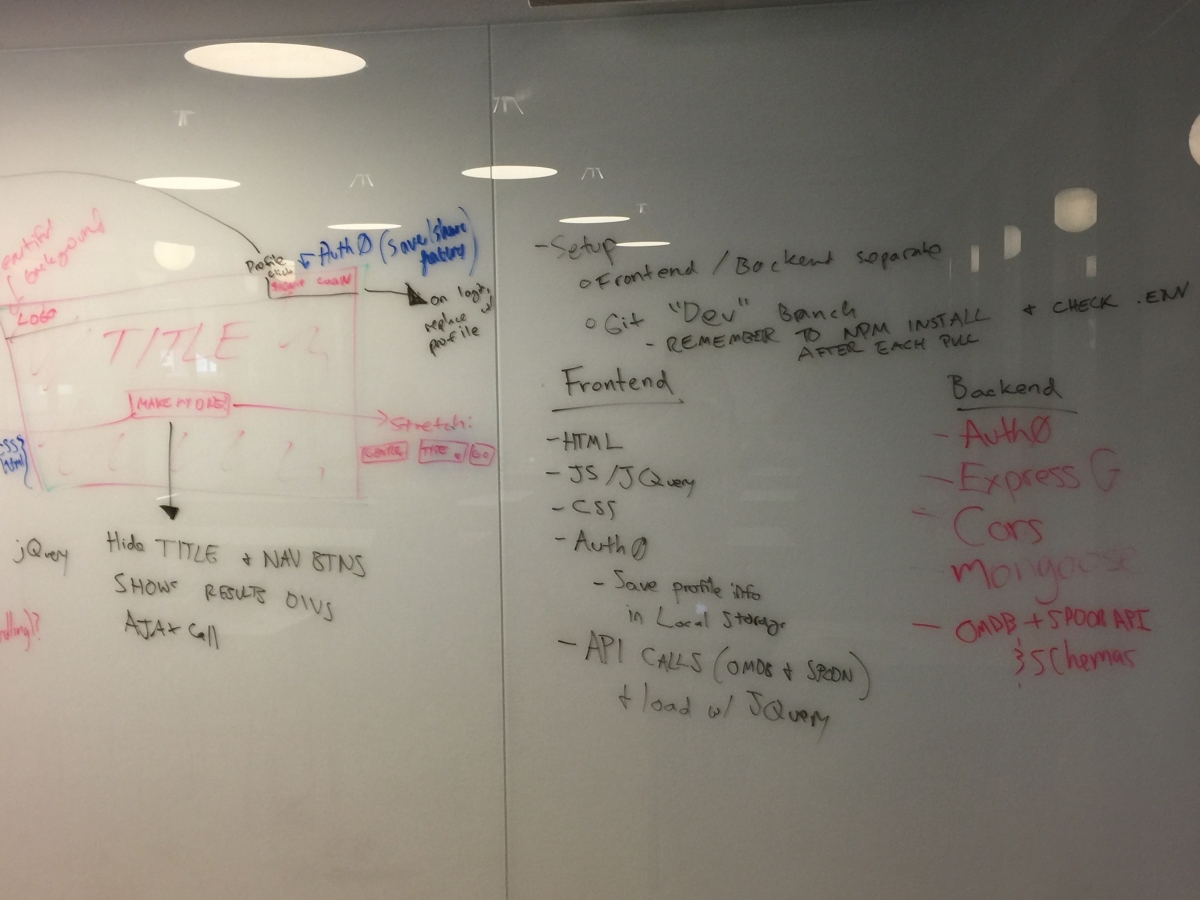 background
LOGO
Profile
Auth0 (save/share
feature)
on login,
replace w/
profile
TITLE
MAKE MY D
Stretch:
GENRE
html
jQuery
Hide TITLE + NAV BTNS
SHOWS RESULTS DIVS
AJAX call
- Setup
o Frontend / Backend separate
o Git "Dev" Branch
- REMEMBER TO NPM INSTALL + CHECK .ENV
AFTER EACH PULL
Frontend
- HTML
- JS / JQuery
- CSS
- Auth0
- Save profile info
in Local Storage
- API CALLS (OMDB + SPOON)
+ load w/ JQuery
Backend
- Auth0
- Express G
- Cors
- Mongoose
- OMDB + SPOON API
schemas